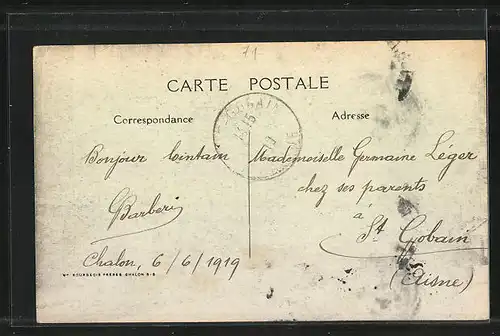 71
CARTE POSTALE
Correspondance
Adresse
Bonjour lointain
Barberi
Chalon, 6/6/1919
Mademoiselle Germaine Léger
chez ses parents
à
St Gobain
(Aisne)
BOURGEOIS FRÈRES CHALON S-S